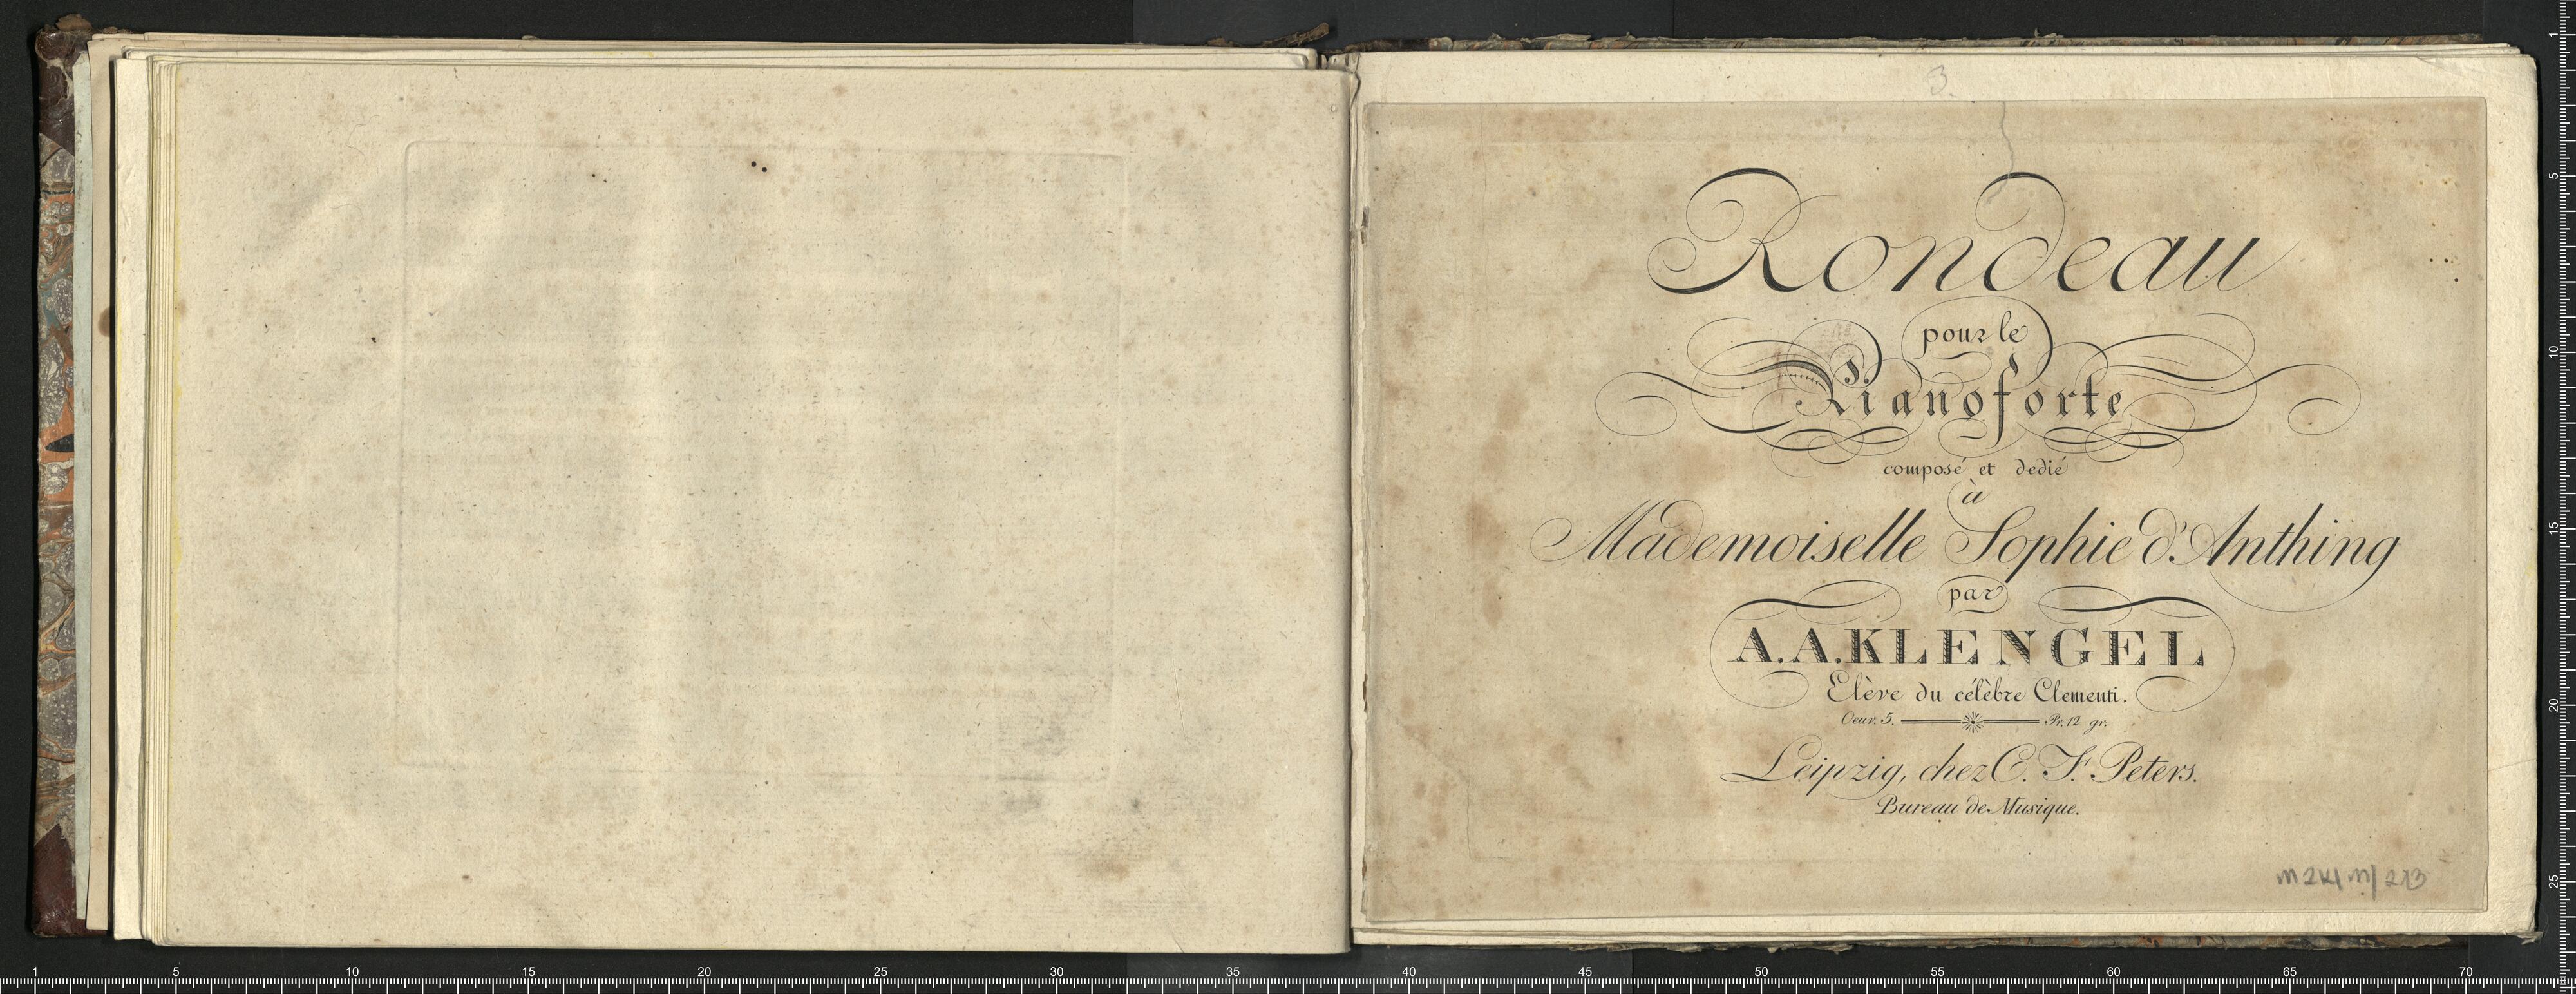 3.
Rondeau
pour le
Pianoforte
composé et dedié
à
Mademoiselle Sophie d'Anthing
par
A. A. KLENGEL
Elève du célèbre Clementi.
Oeuv. 5. Pr. 12 gr.
Leipzig, chez C. F. Peters.
Bureau de Musique.
1 5 10 15 20 25 30 35 40 45 50 55 60 65 70
1
5
10
15
20
25